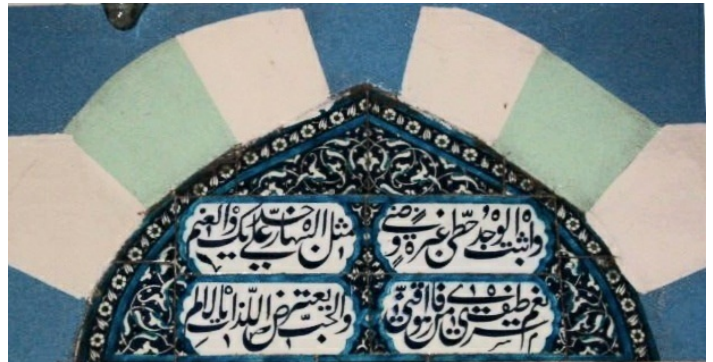 واثبت الوجد خطى عبرة وضنى
مثل البهار على خديك والعنم
نعم سرى طيف من اهوى فارقنى
والحب يعترض اللذات بالالم